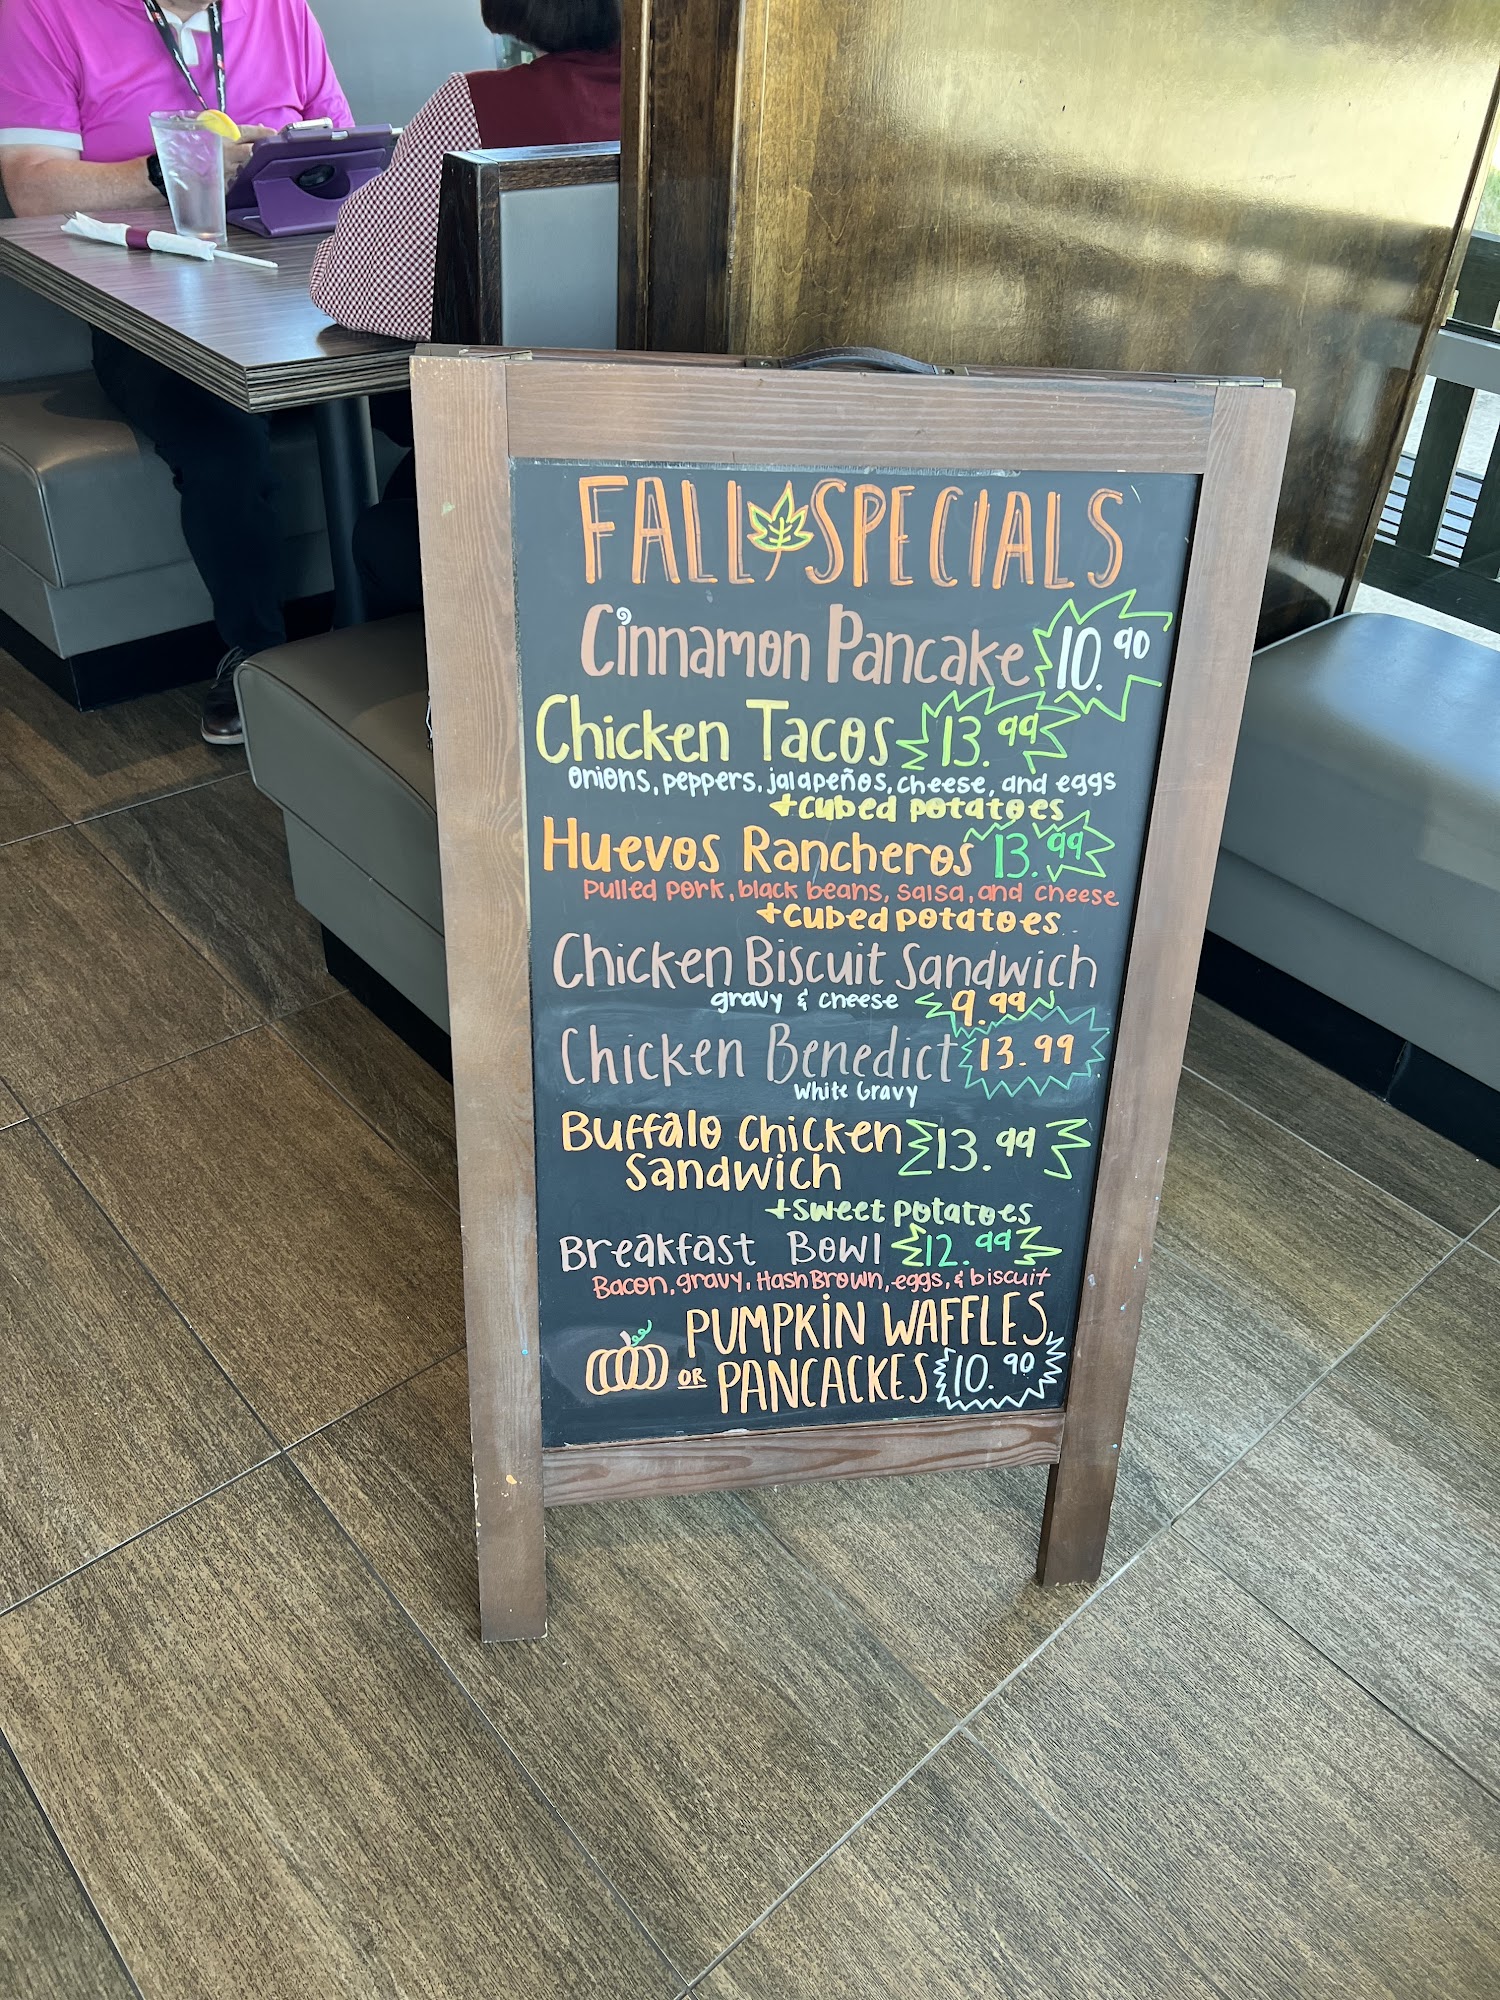 FALL SPECIALS
Cinnamon Pancake 10.90
Chicken Tacos 13.99
onions, peppers, jalapeños, cheese, and eggs
+cubed potatoes
Huevos Rancheros 13.99
pulled pork, black beans, salsa, and cheese
+cubed potatoes
Chicken Biscuit Sandwich
gravy & cheese 9.99
Chicken Benedict 13.99
White Gravy
Buffalo Chicken 13.99
Sandwich
+sweet potatoes
Breakfast Bowl 12.99
Bacon, gravy, HashBrown, eggs, & biscuit
PUMPKIN WAFFLES
OR PANCACKES 10.90